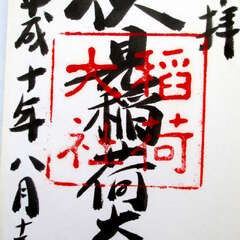 拝
伏見稲荷大
稲荷
大社
平成十年八月十